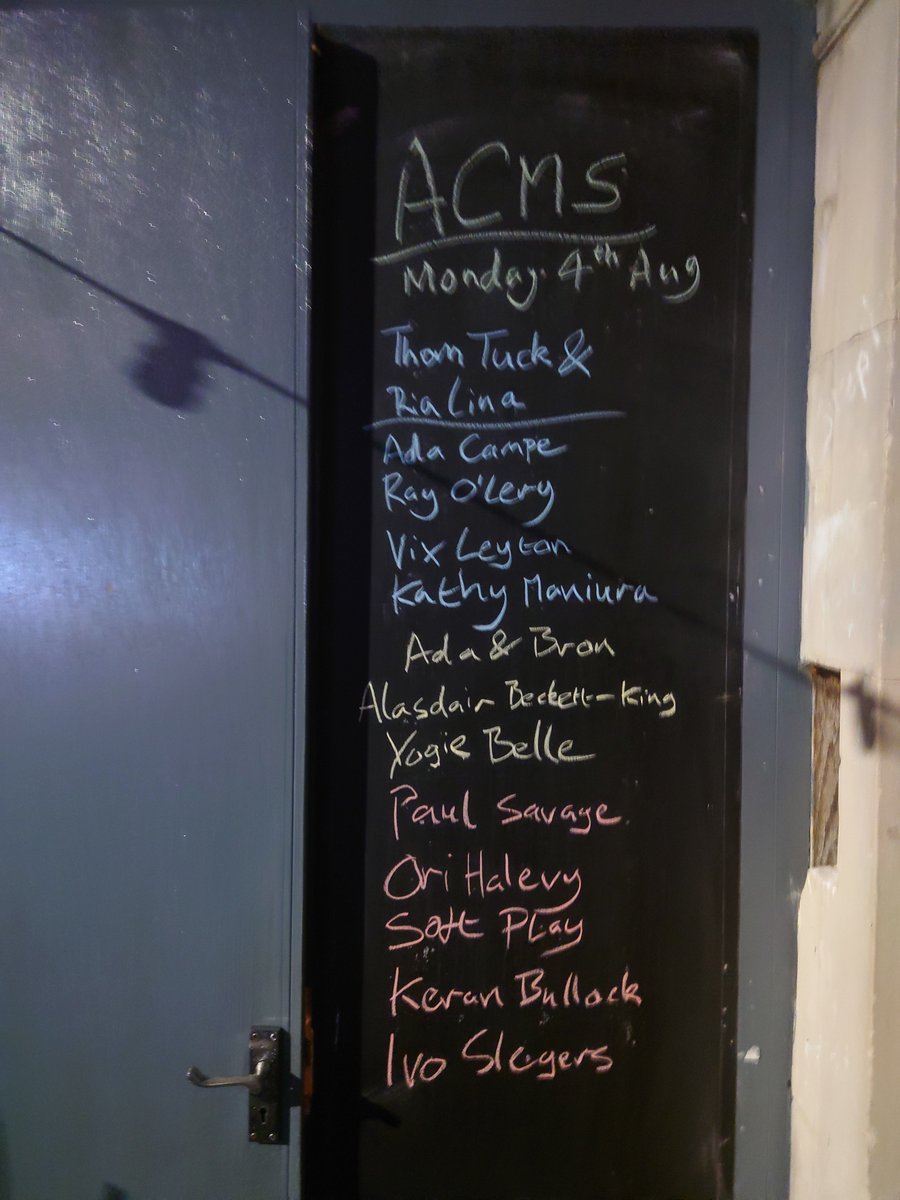 ACMS
Monday 4th Aug
Thom Tuck &
Ria Lina
Ada Campe
Ray O'Lery
Vix Leyton
Kathy Maniura
Ada & Bron
Alasdair Beckett-King
Yogie Belle
Paul Savage
Ori Halevy
Soft Play
Keran Bullock
Ivo Slegers